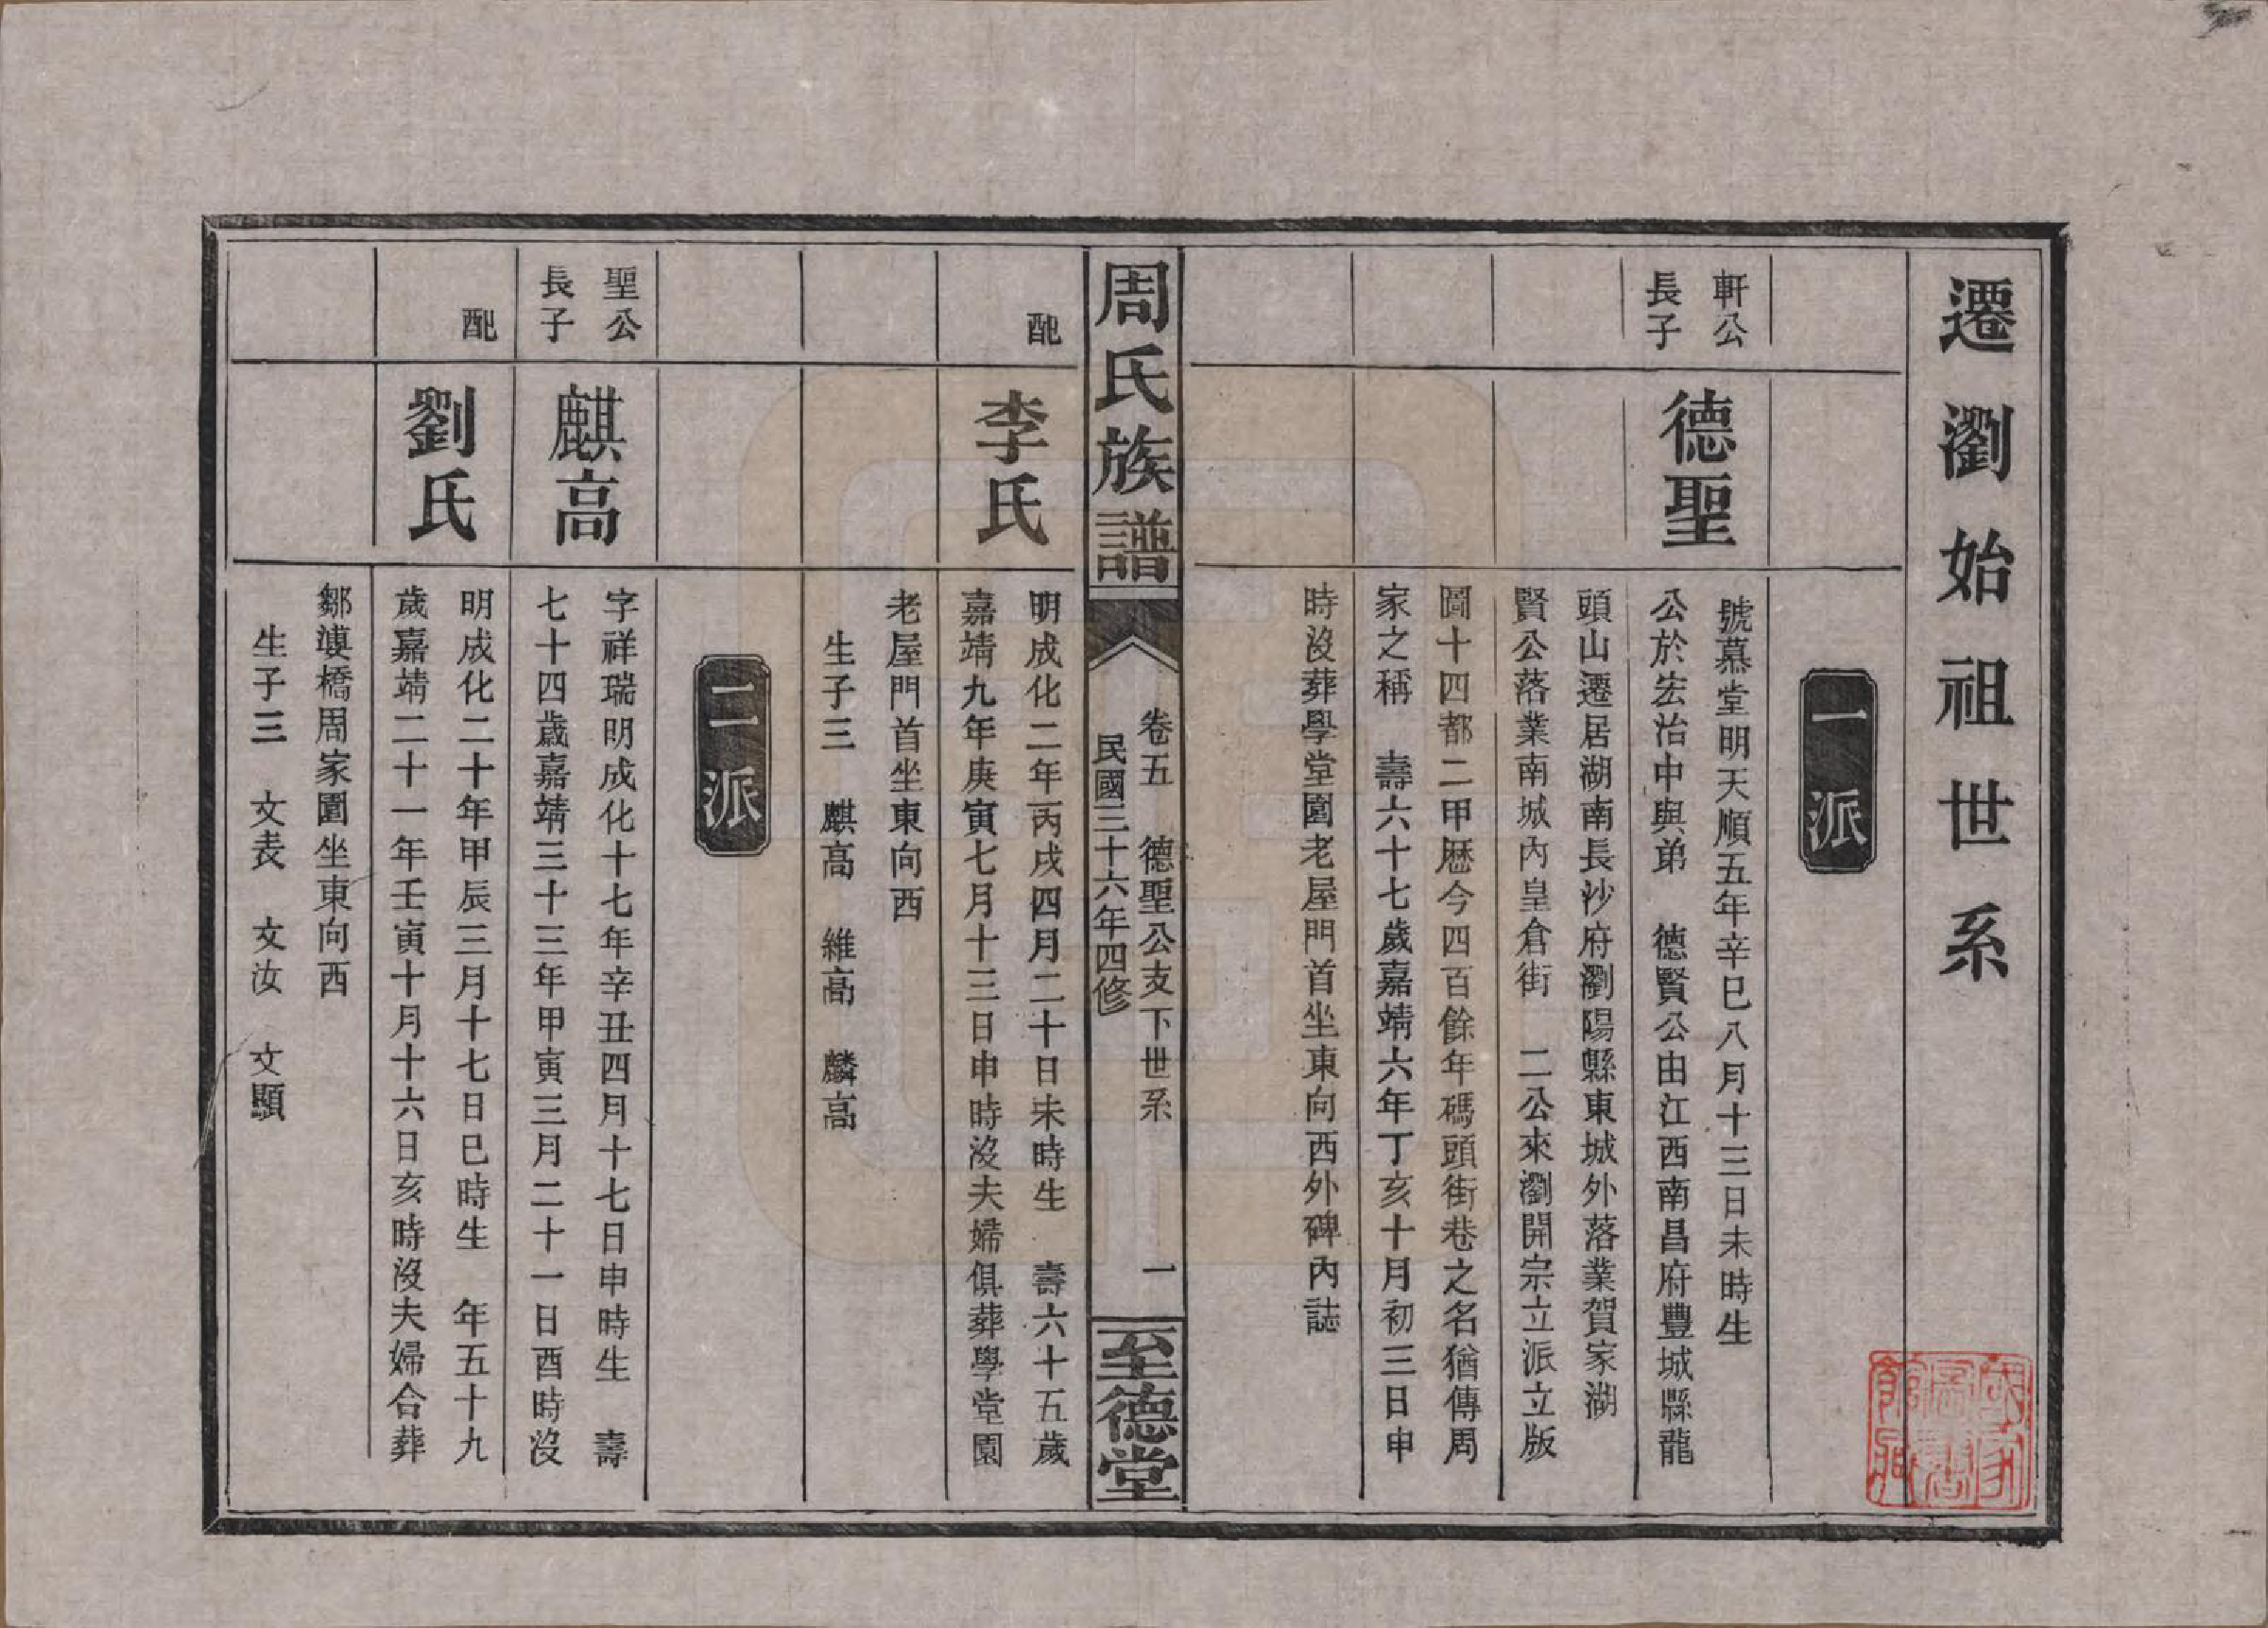 遷瀏始祖世系
一派
軒公
長子
德聖
號慕堂明天順五年辛巳八月十三日未時生
公於宏治中與弟　德賢公由江西南昌府豐城縣龍
頭山遷居湖南長沙府瀏陽縣東城外落業賀家湖
賢公落業南城內皇倉街　二公來瀏開宗立派立版
圖十四都二甲歷今四百餘年碼頭街巷之名猶傳周
家之稱　壽六十七歲嘉靖六年丁亥十月初三日申
時沒葬學堂園老屋門首坐東向西外碑內誌
周氏族譜
卷五　德聖公支下世系　一
民國三十六年四修
至德堂
配
李氏
明成化二年丙戌四月二十日未時生　壽六十五歲
嘉靖九年庚寅七月十三日申時沒夫婦俱葬學堂園
老屋門首坐東向西
生子三　麒高　維高　麟高
二派
聖公
長子
麒高
字祥瑞明成化十七年辛丑四月十七日申時生　壽
七十四歲嘉靖三十三年甲寅三月二十一日酉時沒
配
劉氏
明成化二十年甲辰三月十七日巳時生　年五十九
歲嘉靖二十一年壬寅十月十六日亥時沒夫婦合葬
鄒橋周家園坐東向西
生子三　文表　文汝　文顯